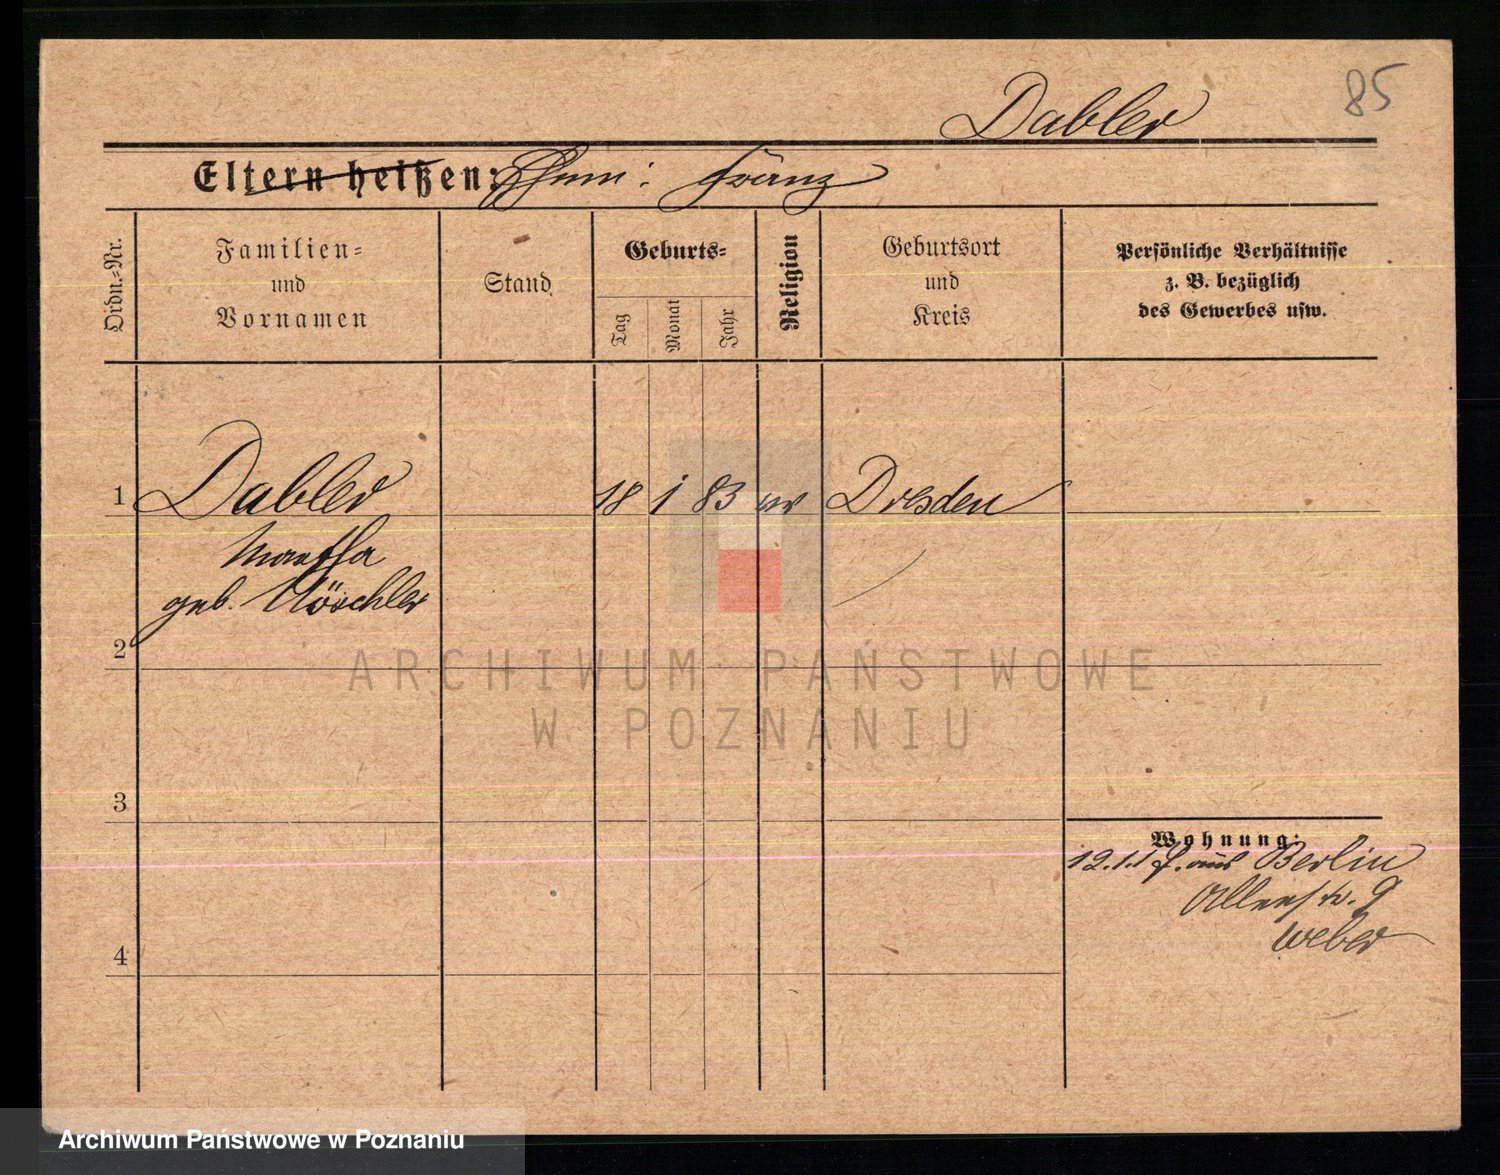 85
Dabler
Eltern heißen: Ehem: Franz
Ordn.-Nr.
Familien-
und
Vornamen
Stand
Geburts-
Tag
Monat
Jahr
Religion
Geburtsort
und
Kreis
Persönliche Verhältnisse
z. B. bezüglich
des Gewerbes usw.
1 Dabler 18 1 83 ev Dresden
Martha
geb.
2
3
4
Wohnung:
aus Berlin
9
Weber
ARCHIWUM PAŃSTWOWE
W POZNANIU
Archiwum Państwowe w Poznaniu